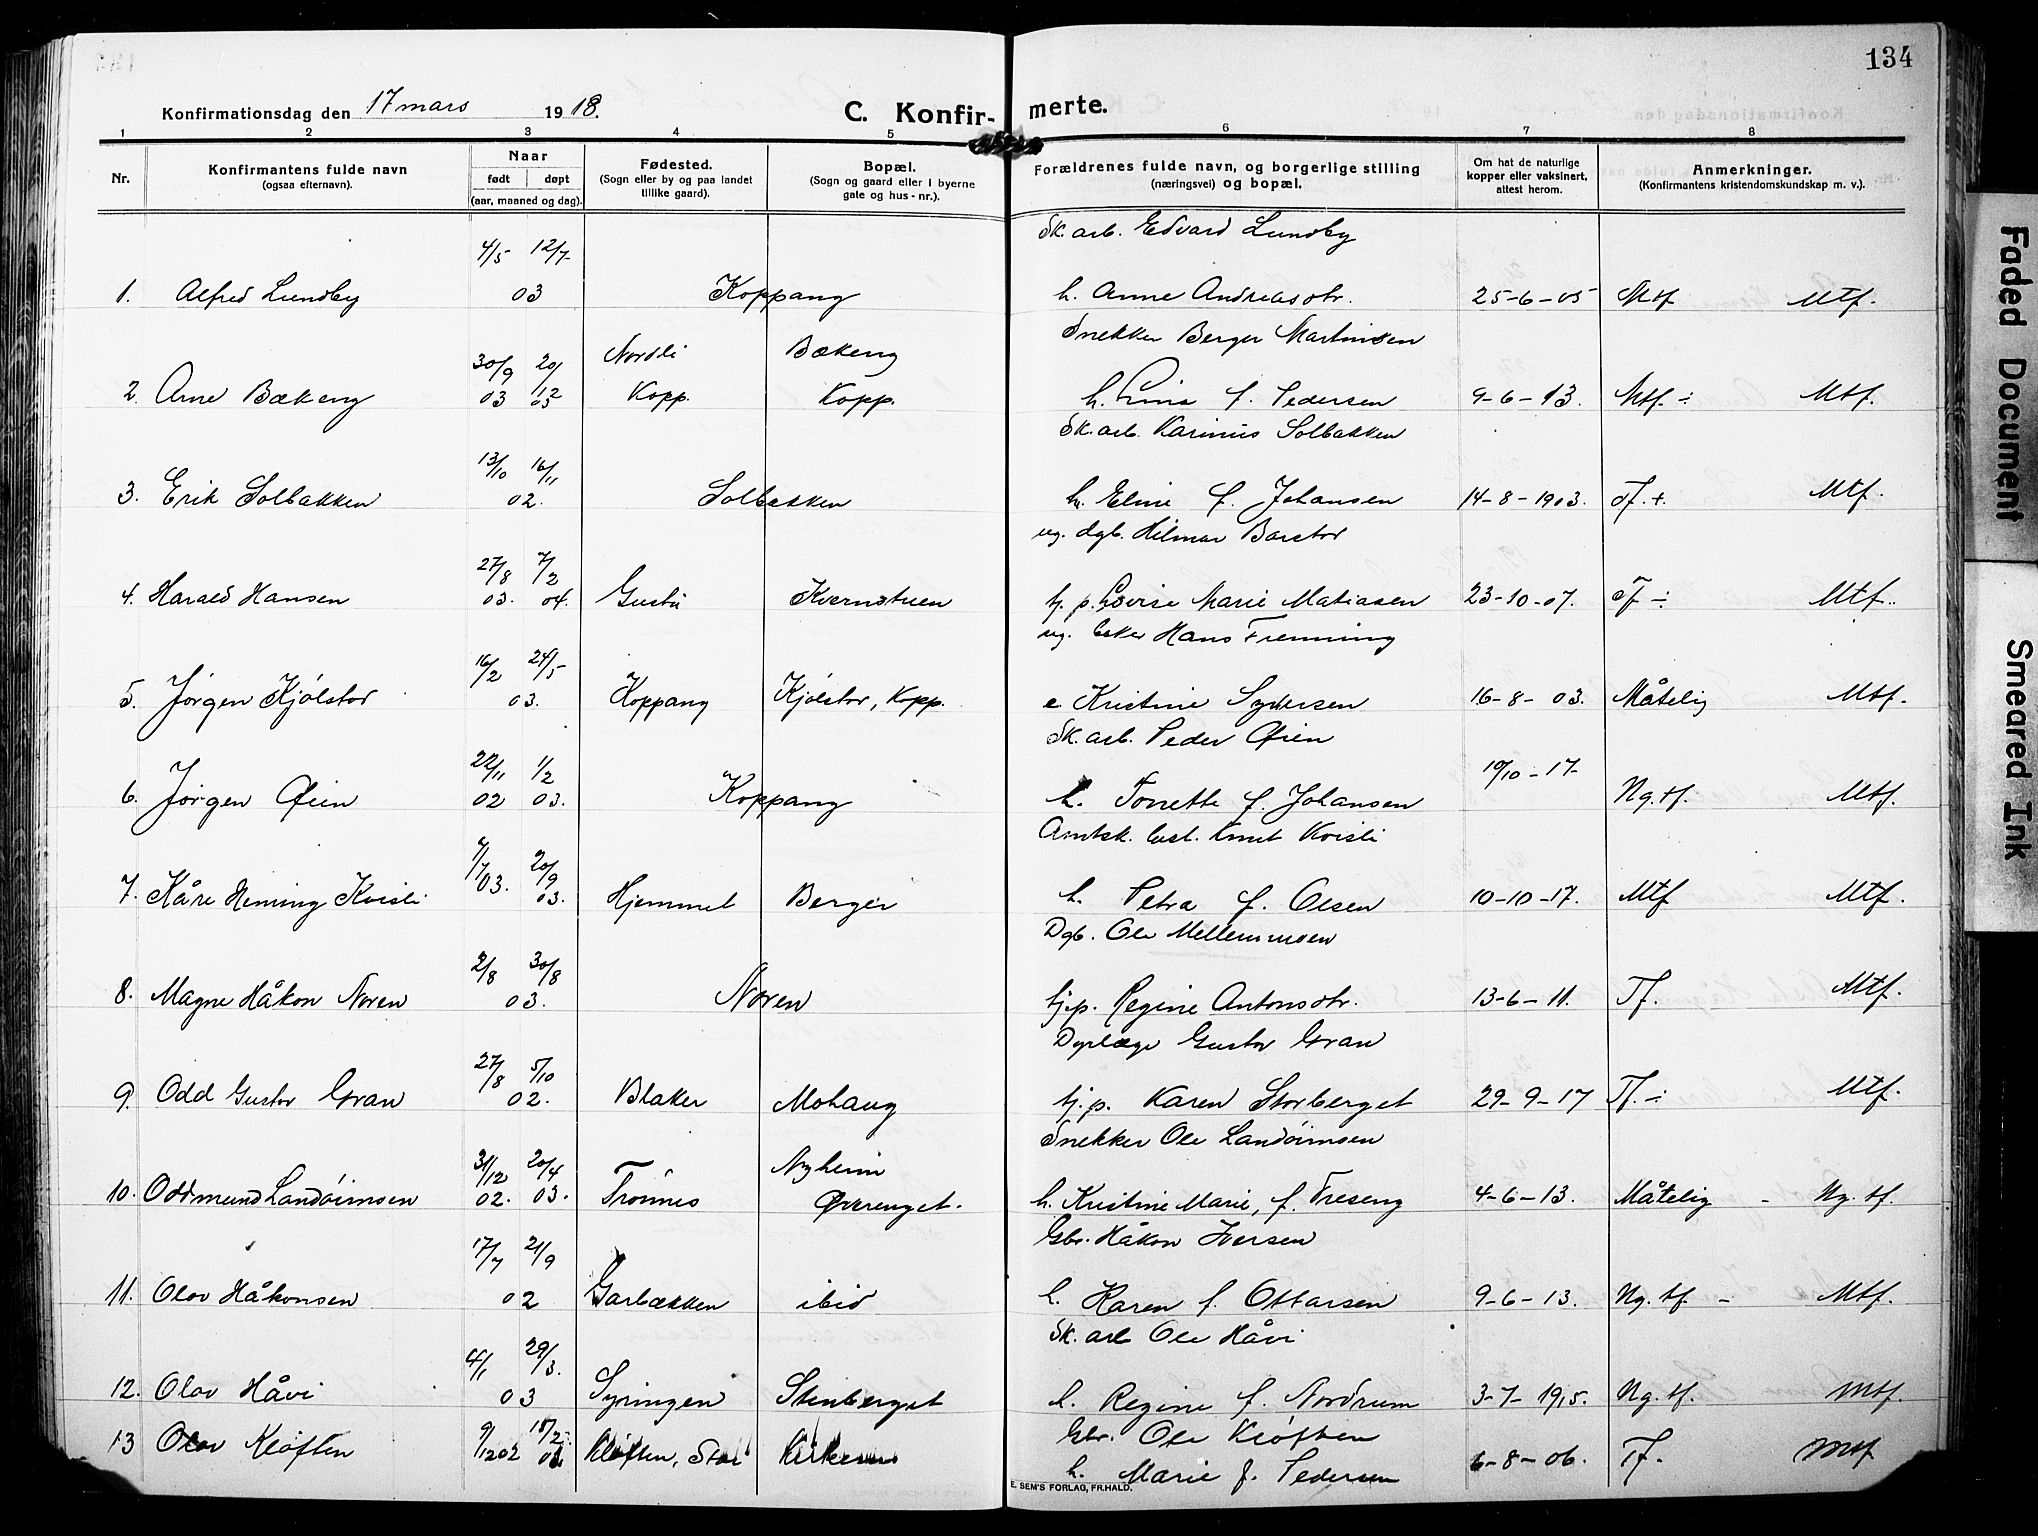 134
Konfirmationsdag den 17 mars 1918. C. Konfirmerte.
1 2 3 4 5 6 7 8
Nr. Konfirmantens fulde navn (ogsaa efternavn). Naar født døpt (aar, maaned og dag). Fødested. (Sogn eller by og paa landet tillike gaard). Bopæl. (Sogn og gaard eller i byerne gate og hus-nr.). Forældrenes fulde navn, og borgerlige stilling (næringsvei) og bopæl. Om hat de naturlige kopper eller vaksinert, attest herom. Anmerkninger. (Konfirmantens kristendomskundskap m. v.).
4/5 12/7 Sk. arb. Edvard Lundby
1. Alfred Lundby 03 Koppang h. Anne Andreasdtr. 25-6-05 Mtf Mtf.
30/9 20/12 Nordli Bækeng Snekker Berger Martinsen
2. Arne Bækeng 03 03 Kopp. Kopp. h. Lina f. Pedersen 9-6-13. Mtf. ÷ Mtf.
13/10 16/11 Sk. arb. Karinus Solbakken
3. Erik Solbakken 02. Solbakken h. Eline f. Johansen 14-8-1903. Tf. + Mtf.
27/8 7/2 ug. dgb. Hilmar Barstor
4. Harald Hansen 03. 04. Gusti Kvernstuen tj. p. Lovise Marie Matiasen 23-10-07. Tf ÷ Mtf.
16/2 24/5 ug. Hans Fremming
5. Jørgen Kjølstor 03. Koppang Kjølstor, Kopp. e Kristine Syversen 16-8-03. Måtelig Mtf.
22/11 1/2 Sk. arb. Peder Øien 19/10-17
6. Jørgen Øien 02 03. Koppang h. Tonette f. Johansen Ng. tf. Mtf.
7/7 20/9 Amtsk. best. Knut Kvisli
7. Kåre Heming Kvisli 03. 03. Hjemmet Berger h. Petra f. Olsen 10-10-17. Mtf Mtf.
2/8 30/8 Dgb. Ole Mellemmoen
8. Magne Håkon Noren 03. Noren tj.p. Regine Antonsdtr. 13-6-11. Tf. Mtf.
27/8 5/10 Dyrlæge Gustav Gran
9. Odd Gustav Gran 02. Blaker Mohaug tj.p. Karen Storberget 29-9-17 Tf. ÷ Mtf.
31/12 20/4 Nyheim Snekker Ole Landøimsen
10. Oddmund Landøimsen 02. 03. Trønnes Øverenget. h. Kristine Marie, f. Treseng 4-6-13. Måtelig - Ng. tf.
17/7 21/9 Gbr. Håkon Iversen
11. Olav Håkonsen 02 Garbækken ibid h. Karen f. Ottarsen 9-6-13. Ng. tf. - Mtf.
4/1 29/3. Sk. arb Ole Håvi
12. Olav Håvi 03 Syringen Stenberget h. Regine f. Nordrum 3-7-1915. Ng. tf. Mtf
Gbr. Ole Kløften
13 Olav Kløften 9/12 02 Kløften, Stai h. Marie f. Pedersen 6-8-06. Tf. Mtf
E. SEM'S FORLAG, FR.HALD.
Faded Document
Smeared Ink